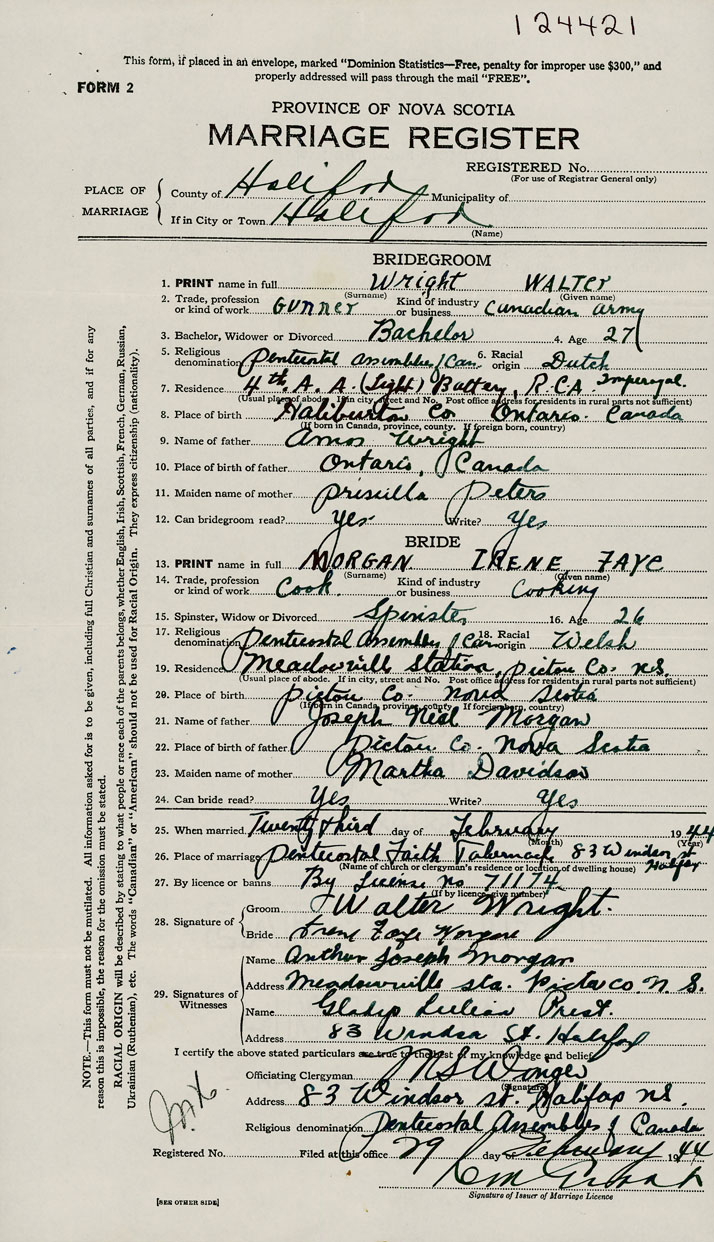 124421
This form, if placed in an envelope, marked "Dominion Statistics—Free, penalty for improper use $300," and
properly addressed will pass through the mail "FREE".
FORM 2
PROVINCE OF NOVA SCOTIA
MARRIAGE REGISTER
REGISTERED No.
(For use of Registrar General only)
PLACE OF MARRIAGE
County of Halifax Municipality of
If in City or Town Halifax
(Name)
BRIDEGROOM
1. PRINT name in full Wright WALTER
(Surname) (Given name)
2. Trade, profession or kind of work GUNNER Kind of industry or business Canadian Army
3. Bachelor, Widower or Divorced Bachelor 4. Age 27
5. Religious denomination Pentecostal Assemblies/Can. 6. Racial origin Dutch
7. Residence 4th. A. A. (Light) Battery, R.C.A. Imperoyal.
(Usual place of abode. If in city, street and No. Post office address for residents in rural parts not sufficient)
8. Place of birth Haliburton Co Ontario. Canada
(If born in Canada, province, county. If foreign born, country)
9. Name of father Amos Wright
10. Place of birth of father Ontario, Canada
11. Maiden name of mother Priscilla Peters
12. Can bridegroom read? Yes Write? Yes
BRIDE
13. PRINT name in full MORGAN IRENE FAYE
(Surname) (Given name)
14. Trade, profession or kind of work Cook Kind of industry or business Cooking
15. Spinster, Widow or Divorced Spinster 16. Age 26
17. Religious denomination Pentecostal Assembly / Can 18. Racial origin Welsh
19. Residence Meadowville Station, Pictou Co. N.S.
(Usual place of abode. If in city, street and No. Post office address for residents in rural parts not sufficient)
20. Place of birth Pictou Co. Nova Scotia
(If born in Canada, province, county If foreign born, country)
21. Name of father Joseph Neal Morgan
22. Place of birth of father Pictou Co. Nova Scotia
23. Maiden name of mother Martha Davidson
24. Can bride read? Yes Write? Yes
25. When married Twenty third day of February 1944
(Month) (Year)
26. Place of marriage Pentecostal Faith Tabernacle 83 Windsor St Halifax
(Name of church or clergyman's residence or location of dwelling house)
27. By licence or banns By License no 71174
(If by licence, give number)
28. Signature of
Groom Walter Wright.
Bride Irene Faye Morgan
29. Signatures of Witnesses
Name Arthur Joseph Morgan
Address Meadowville sta. Pictou co. N. S.
Name Gladys Lillian Prest.
Address 83 Windsor St. Halifax
I certify the above stated particulars are true to the best of my knowledge and belief
Officiating Clergyman
(Signature)
Address 83 Windsor st. Halifax N.S.
Religious denomination Pentecostal Assemblies of Canada
Registered No. Filed at this office 29 day of February 1944
Signature of Issuer of Marriage Licence
[SEE OTHER SIDE]
NOTE.—This form must not be mutilated. All information asked for is to be given, including full Christian and surnames of all parties, and if for any
reason this is impossible, the reason for the omission must be stated.
RACIAL ORIGIN will be described by stating to what people or race each of the parents belongs, whether English, Irish, Scottish, French, German, Russian,
Ukrainian (Ruthenian), etc. The words "Canadian" or "American" should not be used for Racial Origin. They express citizenship (nationality).